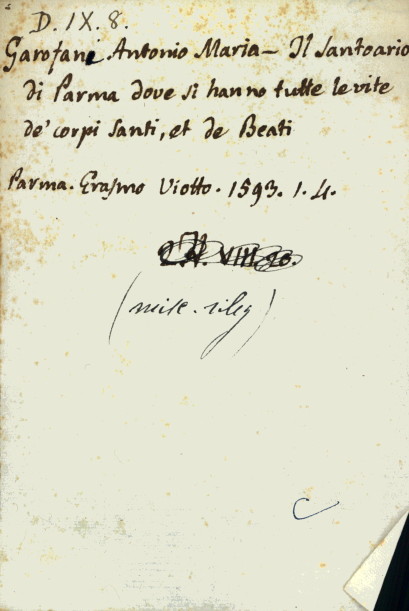 D. IX. 8.
Garofani Antonio Maria — Il Santoario
di Parma dove si hanno tutte le vite
de' corpi Santi, et de Beati
Parma. Erasmo Viotto. 1593. 1. 4.
VIII.
(misc. rileg)
C